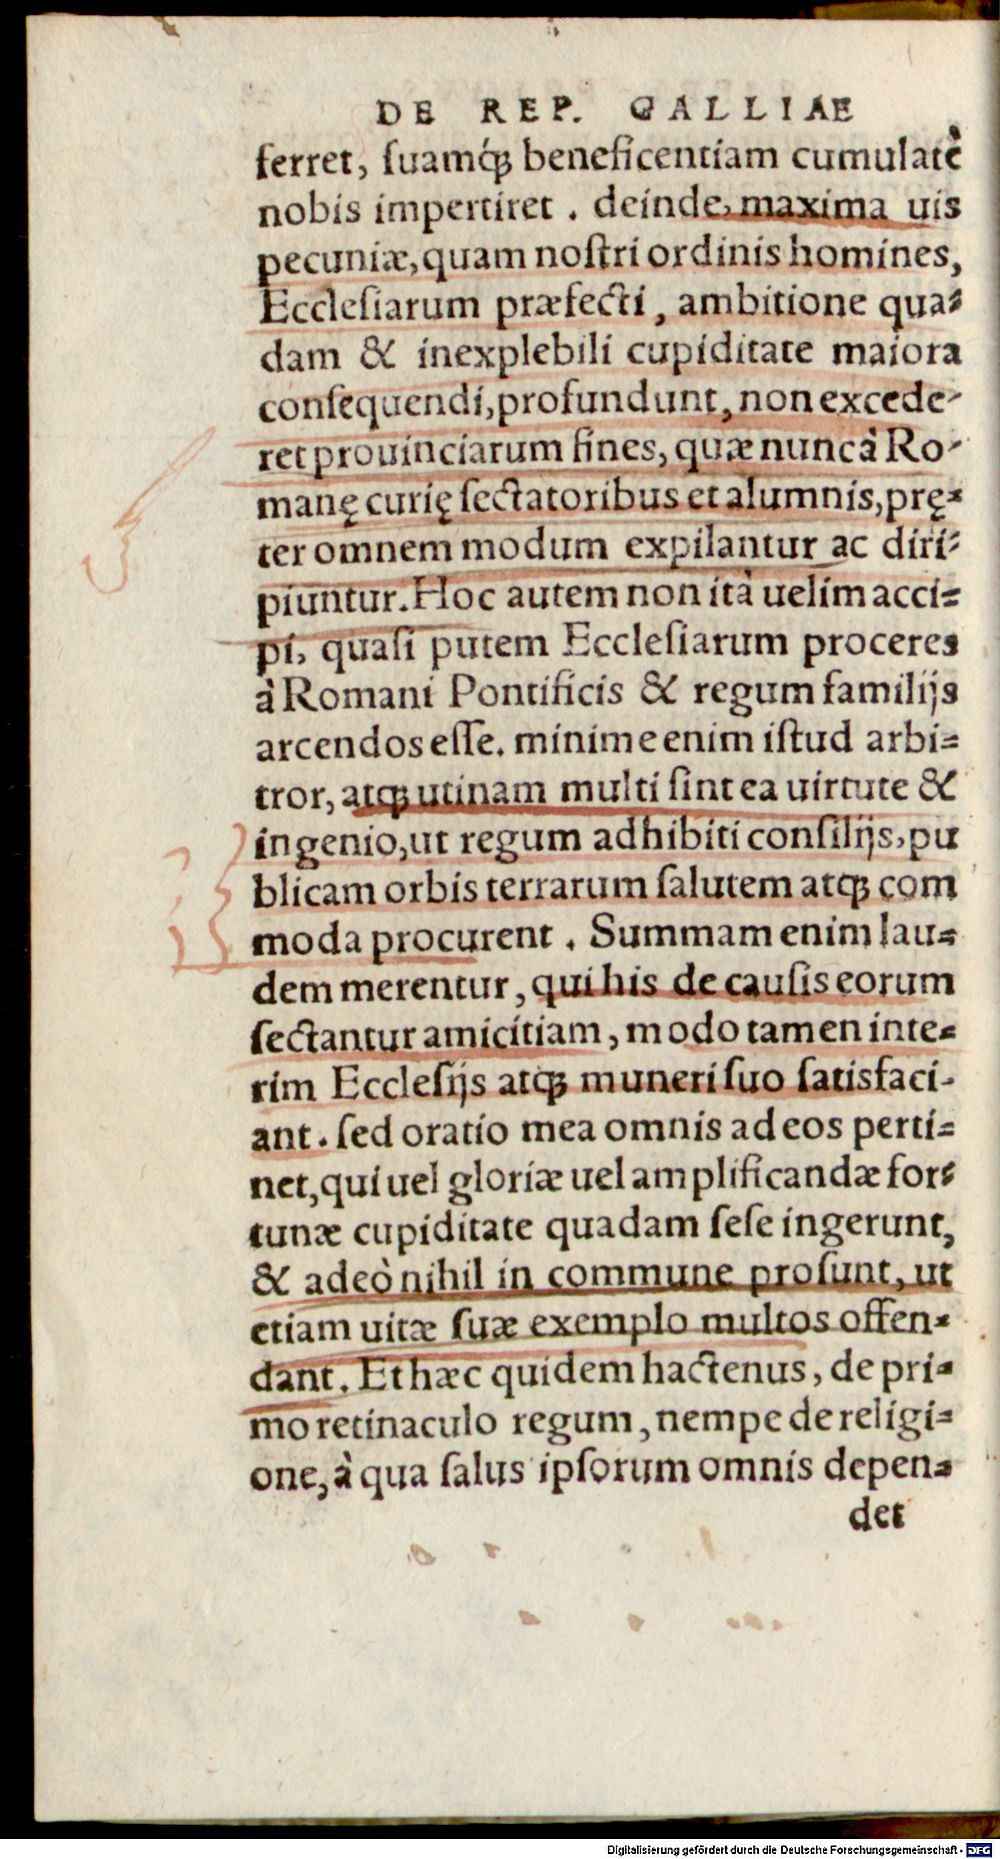 DE REP. GALLIAE
ferret, ſuamq́ꝫ beneficentiam cumulatè
nobis impertiret. deinde, maxima uis
pecuniæ, quam noſtri ordinis homines,
Eccleſiarum præfecti, ambitione qua-
dam & inexplebili cupiditate maiora
conſequendi, profundunt, non excede-
ret prouinciarum fines, quæ nunc à Ro-
manę curię ſectatoribus et alumnis, prę-
ter omnem modum expilantur ac diri-
piuntur. Hoc autem non ità uelim acci-
pi, quaſi putem Eccleſiarum proceres
à Romani Pontificis & regum familijs
arcendos eſſe. minime enim iſtud arbi-
tror, atqꝫ utinam multi ſint ea uirtute &
ingenio, ut regum adhibiti conſilijs, pu
blicam orbis terrarum ſalutem atqꝫ com
moda procurent. Summam enim lau-
dem merentur, qui his de cauſis eorum
ſectantur amicitiam, modo tamen inte-
rim Eccleſijs atqꝫ muneri ſuo ſatisfaci-
ant. ſed oratio mea omnis ad eos perti-
net, qui uel gloriæ uel amplificandæ for-
tunæ cupiditate quadam ſeſe ingerunt,
& adeò nihil in commune proſunt, ut
etiam uitæ ſuæ exemplo multos offen-
dant. Et hæc quidem hactenus, de pri-
mo retinaculo regum, nempe de religi-
one, à qua ſalus ipſorum omnis depen-
det
Digitalisierung gefördert durch die Deutsche Forschungsgemeinschaft - DFG